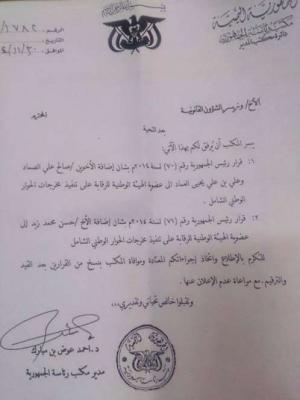 الجمهورية اليمنية
مكتب رئاسة الجمهورية
دائرة مكتب المدير
الرقم /
التاريخ :
الموافق
الأخ/ وزير الشؤون القانونية المحترم
بعد التحية
يسر المكتب أن يرفق لكم بهذا الآتي:
١. قرار رئيس الجمهورية رقم (٧٠) لسنة ٢٠١٤م بشأن إضافة الأخوين/صالح علي الصماد
وعلي بن علي يحيى العماد الى عضوية الهيئة الوطنية للرقابة على تنفيذ مخرجات الحوار
الوطني الشامل
٢. قرار رئيس الجمهورية رقم (٧٦) لسنة ٢٠١٤م بشأن إضافة الأخ/حسن محمد زيد إلى
عضوية الهيئة الوطنية للرقابة على تنفيذ مخرجات الحوار الوطني الشامل
للتكرم بالإطلاع واتخاذ إجراءاتكم المعتادة وموافاة المكتب بنسخ من القرارين بعد القيد
والترقيم . مع مراعاة عدم الإعلان عنها .
وتقبلوا خالص تحياتي وتقديري،،،
د.احمد عوض بن مبارك
مدير مكتب رئاسة الجمهورية